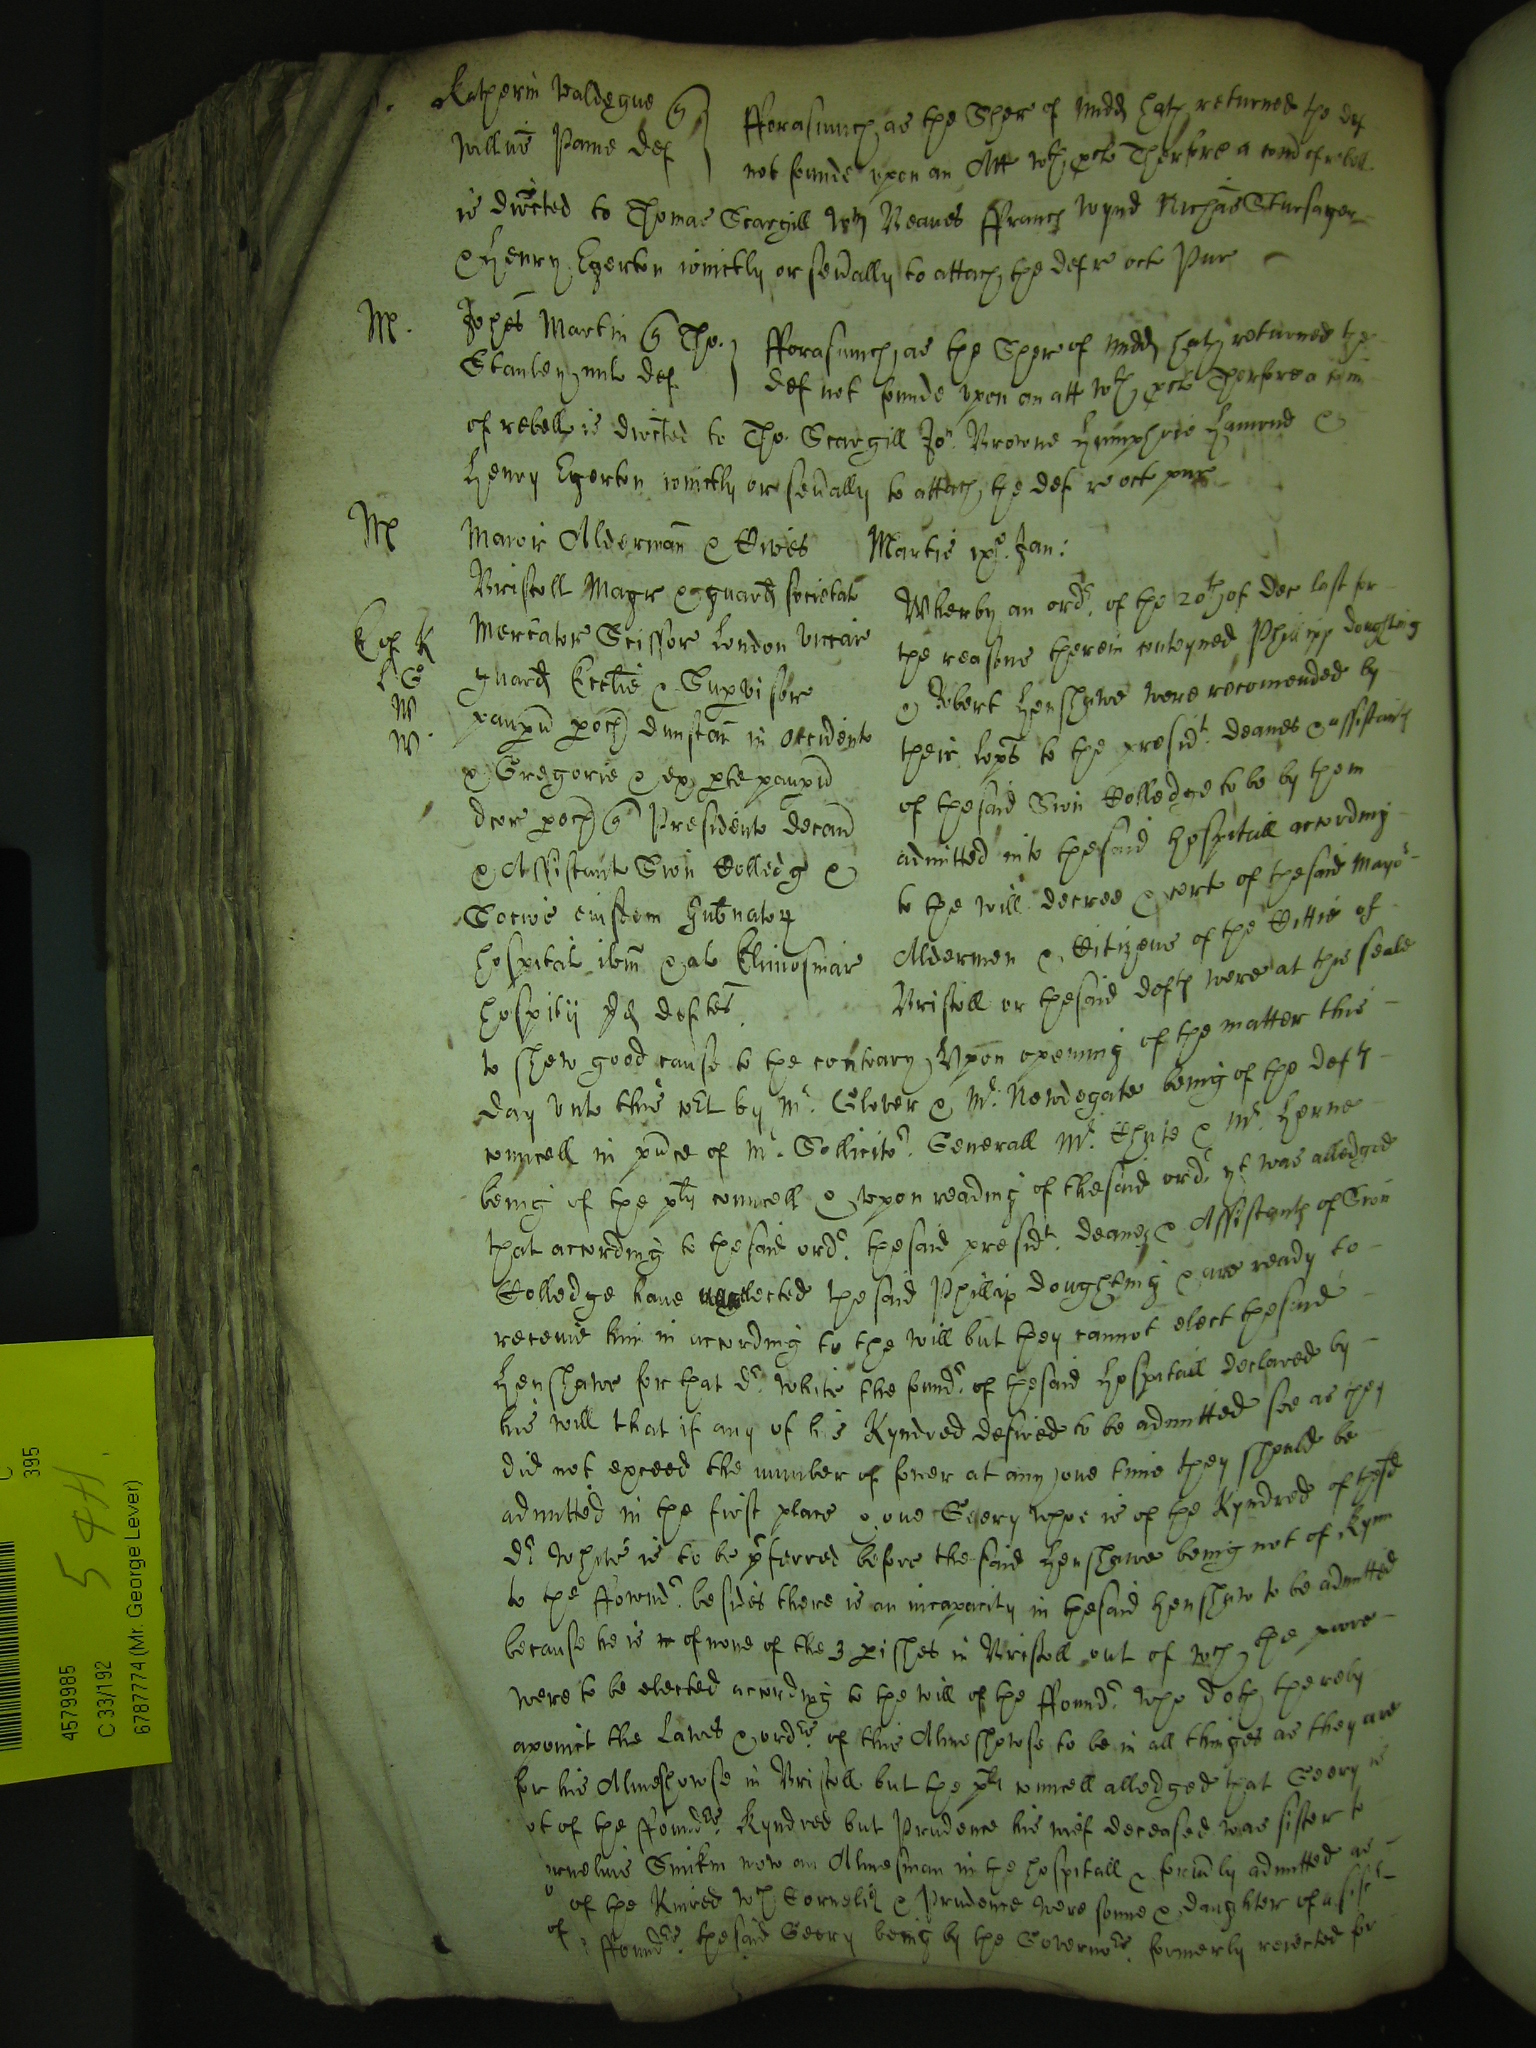 Katherin Waldegue
Willus Paine def
fforasmuch as the Sher of Midd hath returned the def
not founde upon an Att wth pclo Therfore a comd of rebell
is directed to Thomas Scargill Wm Reaues ffranc Wynd Richas
& Henry Egerton ioinctly or seually to attach the def re oct Pur
M.
Johes Martin Tho.
Stanley mil def
fforasmuch as the Sher of Midd hath returned the
def not founde upon an att wth pclo Therfore a com
of rebell is directed to Tho. Scargill Jo. Browne Humphrie Hamond &
Henry Egerton ioinctly or seually to attach the def re oct pur
M
Maior Alderman & Cives
Bristoll Magr & guard societat
E of K
Mercator Scissor London viccar
L G
guard Ecclie & Supvisor
W
paupu poch Dunstan in Occidente
W
& Gregorie & ex pte paupu
dcor poch Presidente Decan
& Assistant Sion Colledg &
Sociis eiusdem Gubnator
hospital ibm & al Elimosinar
hospitij pd deftes
Martis ix Jan:
Wherby an ordr. of the 20th of Dec last for
the reasons therein conteyned Phillipp Doughting
& Robert Henshawe were recomended by
their lopps to the presidt. Deanes & assistants
of the said Sion Colledge to be by them
admitted into the said hospitall according
to the will decree & cert of the said Mayor
Aldermen & Citizens of the Cittie of
Bristoll or the said defts were at this seale
to shew good cause to the contrary, Upon opening of the matter this
day unto this Crt by Mr. Glover & Mr. Newdegate being of the defts
councell in pnce of Mr. Sollicitor. Generall Mr. Chute & Mr. Herne
being of the plts councell & upon reading of the said ordr. yt was alledged
that according to the said ordr. the said presidt. Deanes & Assistants of Sion
Colledge have elected the said Phillip Doughting & are ready to
receiue him in according to the will but they cannot elect the said
Henshawe for that Dr. White the foundr. of the said hospitall declared by
his will that if any of his Kyndred desired to be admitted soe as they
did not exceed the number of fower at any one time they should be
admitted in the first place & one Geery whoe is of the Kyndred of the sd
Dr White is to be pferred before the said Henshawe being not of Kynn
to the ffowndr. besides there is an incapacity in the said Henshaw to be admitted
because he is of none of the 3 pishes in Bristoll out of wch the poore
were to be elected according to the will of the ffoundr. who doth thereby
apoinct the Lawes & ordrs. of this Almeshowse to be in all thinges as they are
for his Almeshowse in Bristoll but the plts councell alledged that Geery is
ot of the ffoundrs. Kyndred but Prudence his wief deceased was sister to
ornelius Smikin now an Almesman in the hospitall & formly admitted as
of the Kinred wch Cornelius & Prudence were sonne & daughter of a sistr
of ffoundrs. the said Geery being by the Governors. formerly reiected for
395
54H
4579985
C 33/192
6787774 (Mr. George Lever)